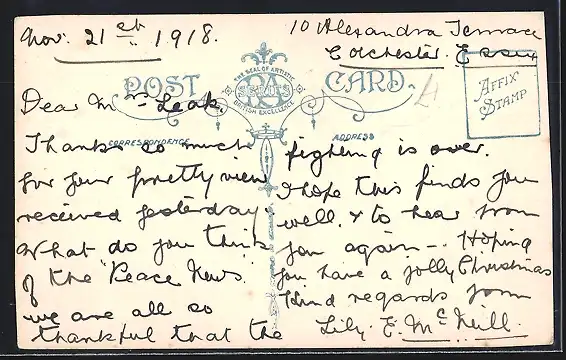 Nov. 21st 1918.
10 Alexandra Terrace
Colchester. Essex
THE SEAL OF ARTISTIC
RA
SERIES
BRITISH EXCELLENCE
POST CARD.
AFFIX
STAMP
CORRESPONDENCE
ADDRESS
Dear Mrs Leak.
Thanks so much
for your pretty view
received yesterday.
What do you think
of the "Peace News.
we are all so
thankful that the
fighting is over.
I hope this finds you
well. & to hear from
you again -. Hoping
you have a jolly Christmas
Kind regards from
Lily. E. McNeill.